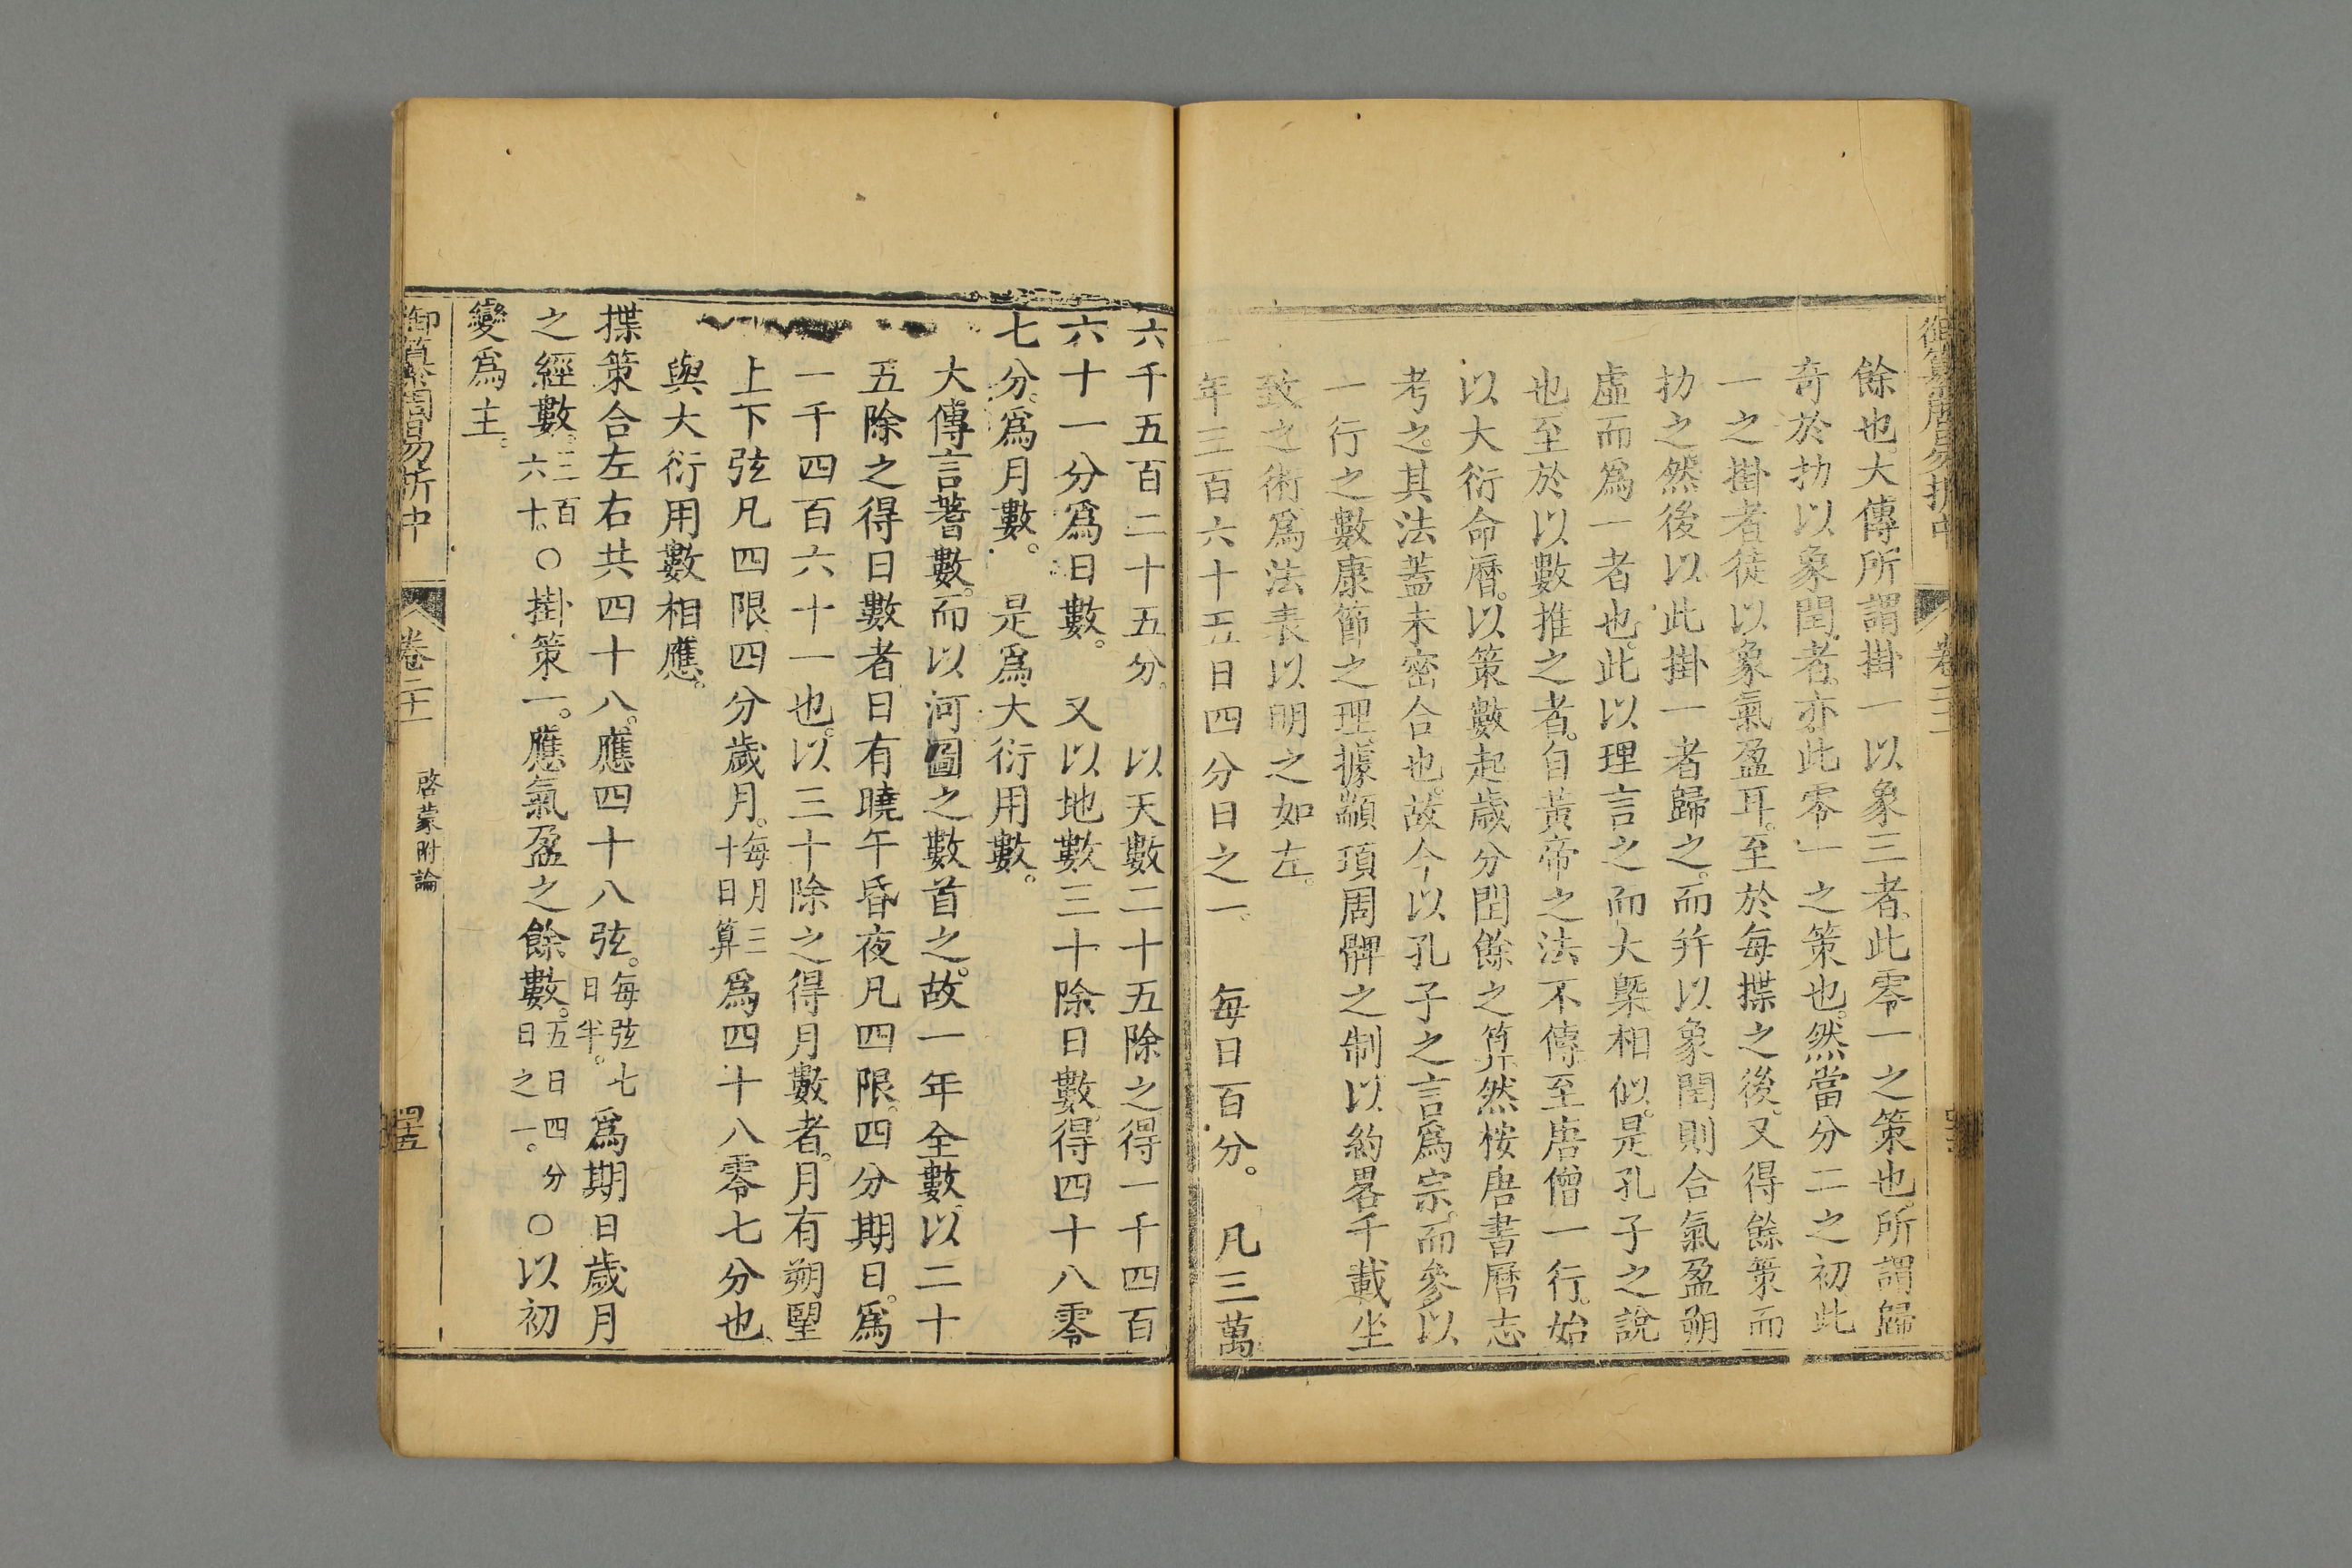 御纂周易折中
卷二十一
餘也。大傳所謂掛一以象三者。此零一之策也。所謂歸
奇於扐以象閏者。亦此零一之策也。然當分二之初。此
一之掛者。徒以象氣盈耳。至於每揲之後。又得餘策而
扐之。然後以此掛一者歸之。而幷以象閏。則合氣盈朔
虛而爲一者也。此以理言之。而大槩相似。是孔子之說
也。至於以數推之者。自黃帝之法不傳。至唐僧一行。始
以大衍命曆。以策數起歲分閏餘之算。然桉唐書曆志
考之。其法蓋未密合也。故今以孔子之言爲宗。而參以
一行之數康節之理。據顓頊周髀之制。以約畧千載坐
致之術。爲法表以明之如左。
一年三百六十五日四分日之一。 每日百分。 凡三萬
六千五百二十五分。 以天數二十五除之得一千四百
六十一分爲日數。 又以地數三十除日數。得四十八零
七分。爲月數。 是爲大衍用數。
大傳言蓍數。而以河圖之數首之。故一年全數。以二十
五除之得日數者。日有曉午昏夜凡四限。四分期日。爲
一千四百六十一也。以三十除之得月數者。月有朔望
上下弦凡四限。四分歲月。每月三十日算爲四十八零七分也。
與大衍用數相應。
揲策合左右共四十八。應四十八弦。每弦七日半。爲期日歲月
之經數。三百六十。○掛策一。應氣盈之餘數。五日四分日之一。○以初
變爲主。
御纂周易折中
卷二十一
啓蒙附論
四十五